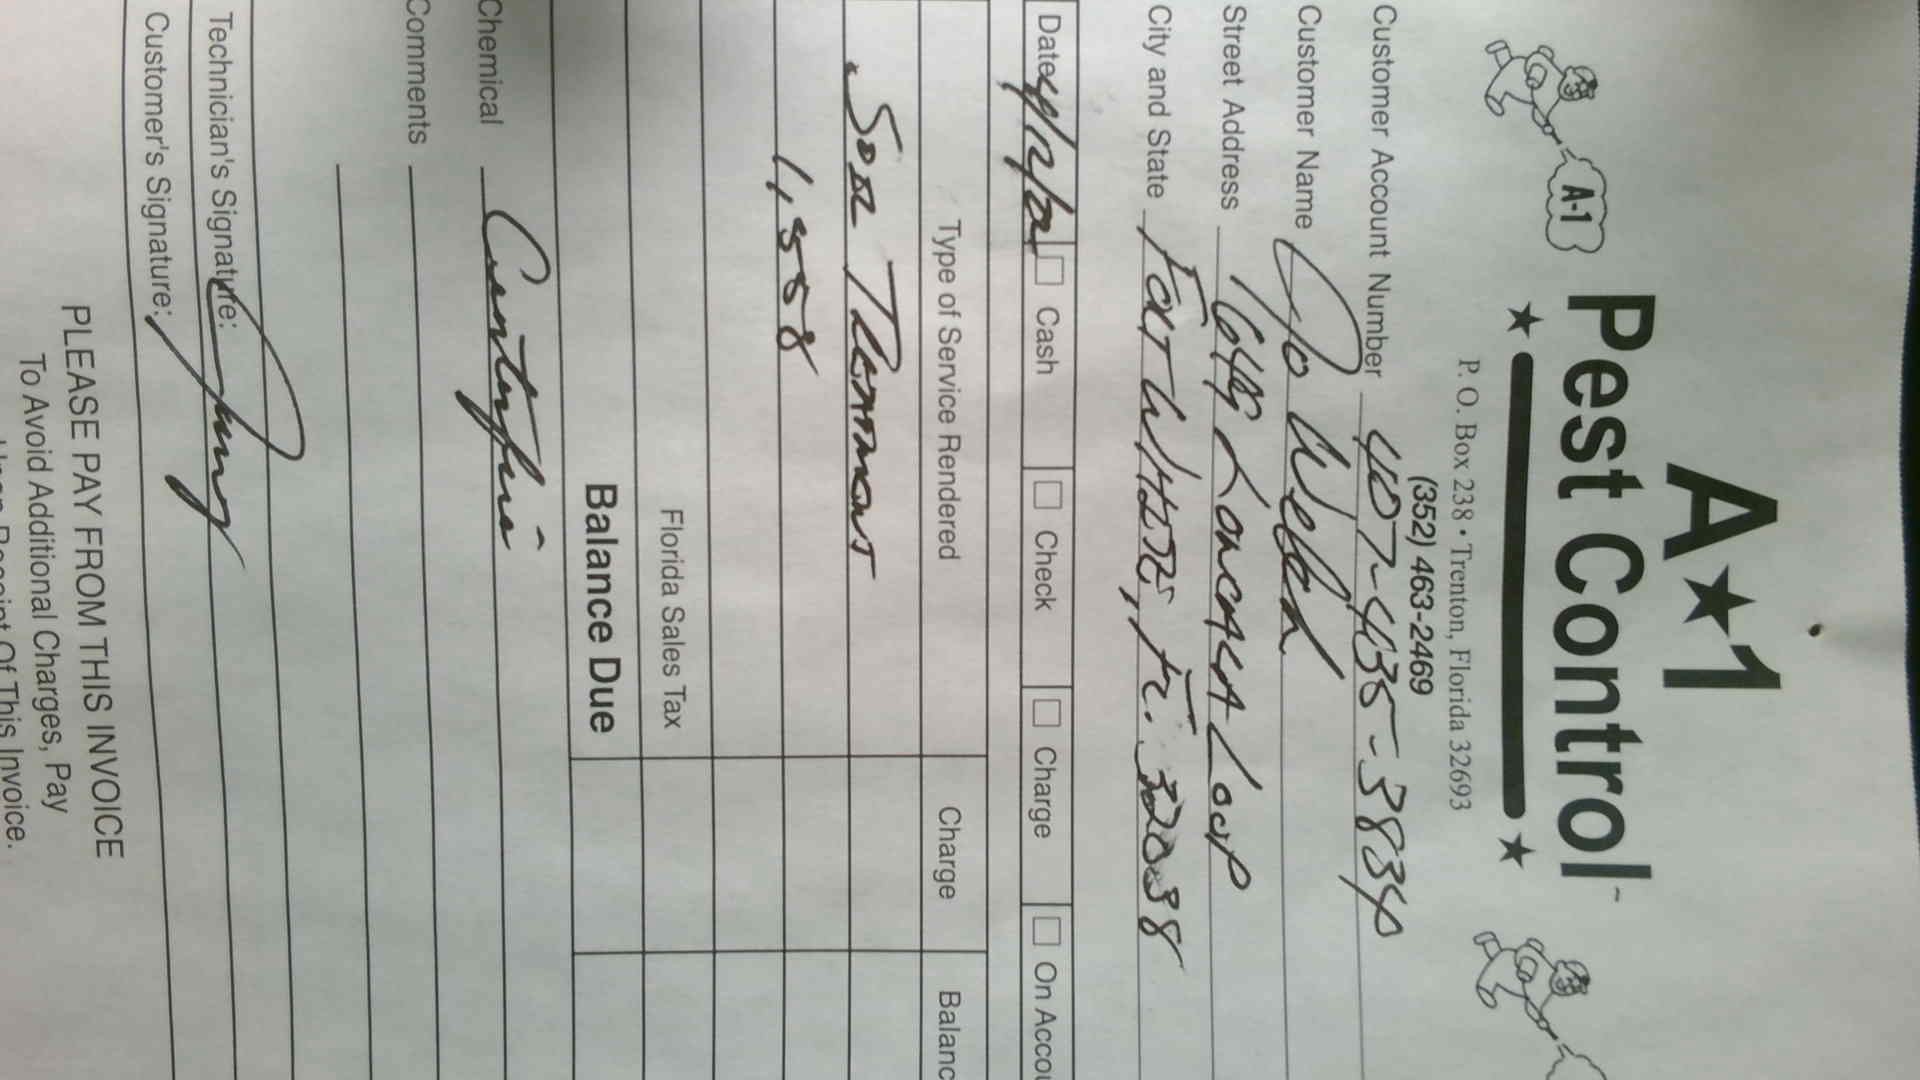 A★1
Pest Control™
A-1
P. O. Box 238 • Trenton, Florida 32693
(352) 463-2469
Customer Account Number 407-435-3834
Customer Name Jo Welch
Street Address Loop
City and State Fort White, FL. 32038
Date Cash Check Charge On Accou
Type of Service Rendered Charge Balanc
Soil Termons
1,558
Florida Sales Tax
Balance Due
Chemical
Comments
Technician's Signature:
Customer's Signature:
PLEASE PAY FROM THIS INVOICE
To Avoid Additional Charges, Pay
Upon Receipt Of This Invoice.